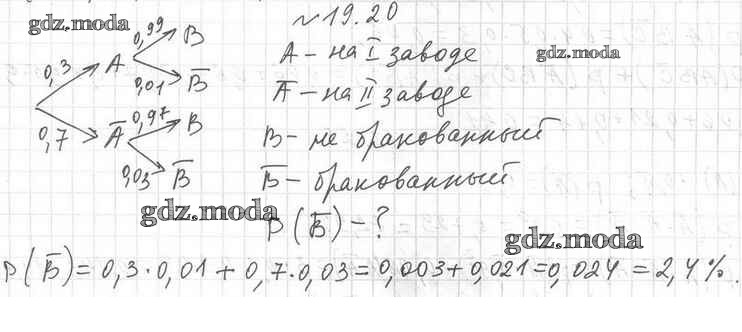 № 19.20
0,99 B
0,3 A
0,01 B̅
0,7 A̅
0,97 B
0,03 B̅
A – на I заводе
A̅ – на II заводе
B – не бракованный
B̅ – бракованный
P(B̅) – ?
P(B̅) = 0,3·0,01 + 0,7·0,03 = 0,003 + 0,021 = 0,024 = 2,4%.
gdz.moda
gdz.moda
gdz.moda
gdz.moda